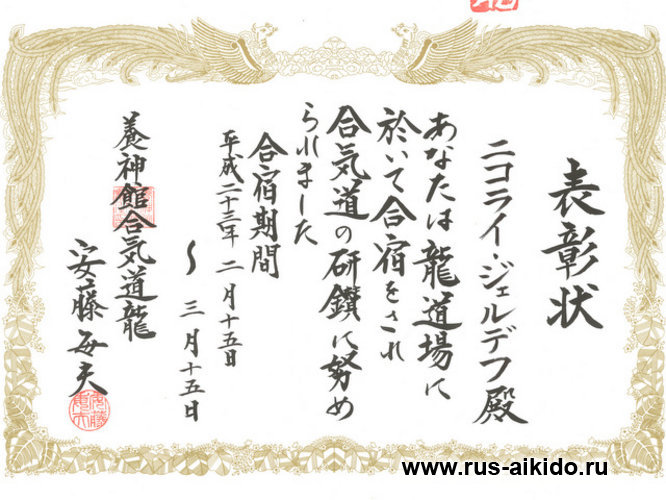 表彰状
ニコライ・ジェルデフ殿
あなたは龍道場に
於いて合宿をされ
合気道の研鑽に努め
られました
合宿期間
平成二十三年 二月十五日
〜 三月十五日
養神館合気道龍
安藤毎夫
www.rus-aikido.ru